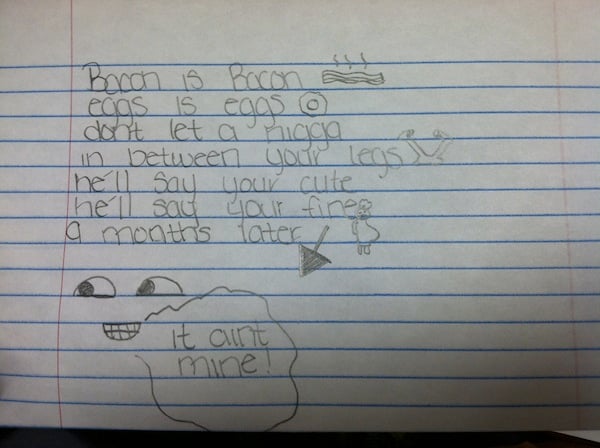 Bacon is Bacon
eggs is eggs
don't let a nigga
in between your legs
he'll say your cute
he'll say your fine
9 months later
it aint
mine!